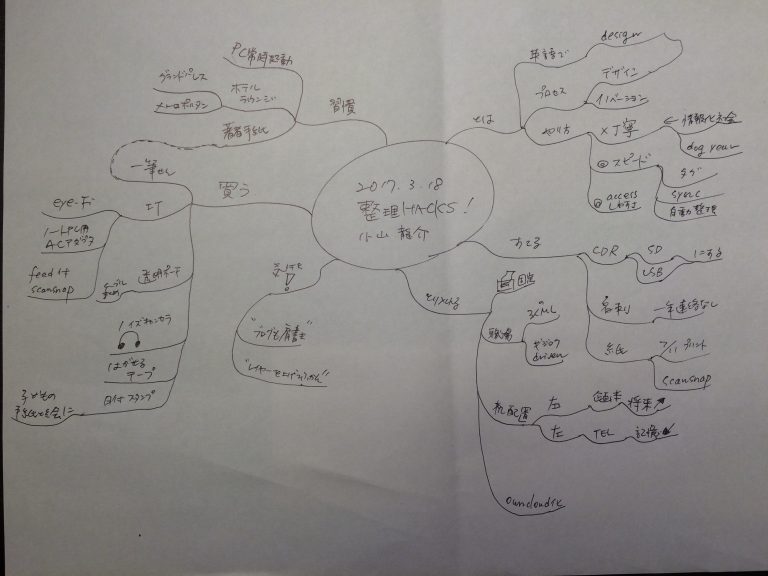 2017.3.18
整理HACKS!
小山 龍介
とは
単語で
design
デザイン
プロセス
イノベーション
やり方
×丁寧
← 情報化社会
dog year
◎スピード
タグ
sync
自動整理
◎access
しやすさ
すてる
CDR
SD
USB
にする
名刺
一年連絡なし
紙
7/11 プリント
scansnap
とりいれる
固定
職場
3人ML
driven
机配置
右
将来
左
TEL
記憶
owncloud化
"ブログも肩書き"
買う
一筆せん
IT
eye-Fi
ノートPC用
ACアダプタ
feed it
scansnap
透明ポーチ
ノイズキャンセラ
はがせる
テープ
日付スタンプ
子どもの
習慣
PC常時起動
ホテル
ラウンジ
グランドパレス
メトロポリタン